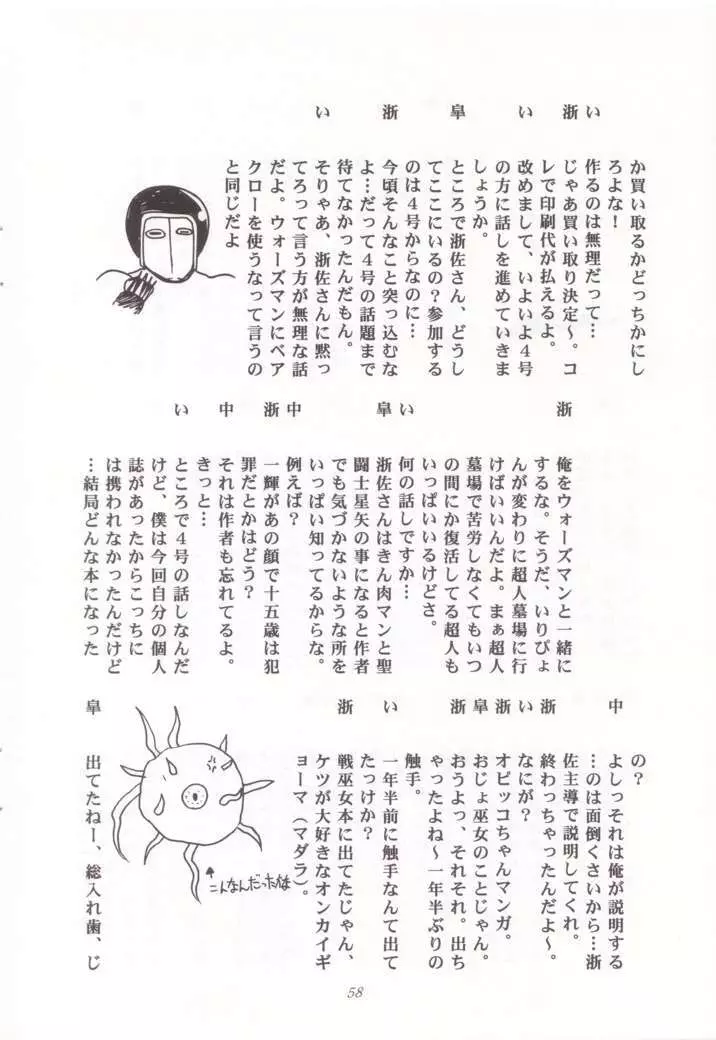 か買い取るかどっちかにし
ろよな!
い 作るのは無理だって…
浙 じゃあ買い取り決定〜。コ
レで印刷代が払えるよ。
い 改めまして、いよいよ4号
の方に話しを進めていきま
しょうか。
皐 ところで浙佐さん、どうし
てここにいるの?参加する
のは4号からなのに…
浙 今頃そんなこと突っ込むな
よ…だって4号の話題まで
待てなかったんだもん。
い そりゃあ、浙佐さんに黙っ
てろって言う方が無理な話
だよ。ウォーズマンにベア
クローを使うなって言うの
と同じだよ
浙 俺をウォーズマンと一緒に
するな。そうだ、いりぴょ
んが変わりに超人墓場に行
けばいいんだよ。まぁ超人
墓場で苦労しなくてもいつ
の間にか復活してる超人も
いっぱいいるけどさ。
い 何の話しですか…
皐 浙佐さんはきん肉マンと聖
闘士星矢の事になると作者
でも気づかないような所を
いっぱい知ってるからな。
中 例えば?
浙 一輝があの顔で十五歳は犯
罪だとかはどう?
中 それは作者も忘れてるよ。
きっと…
い ところで4号の話しなんだ
けど、僕は今回自分の個人
誌があったからこっちに
は携われなかったんだけど
…結局どんな本になった
の?
中 よしっそれは俺が説明する
…のは面倒くさいから…浙
佐主導で説明してくれ。
浙 終わっちゃったんだよ〜。
い なにが?
浙 オピッコちゃんマンガ。
皐 おじょ巫女のことじゃん。
浙 おうよっ、それそれ。出ち
ゃったよね〜一年半ぶりの
触手。
い 一年半前に触手なんて出て
たっけか?
浙 戦巫女本に出てたじゃん、
ケツが大好きなオンカイギ
ョーマ(マダラ)。
こんなんだったかな
皐 出てたねー、総入れ歯、じ
58